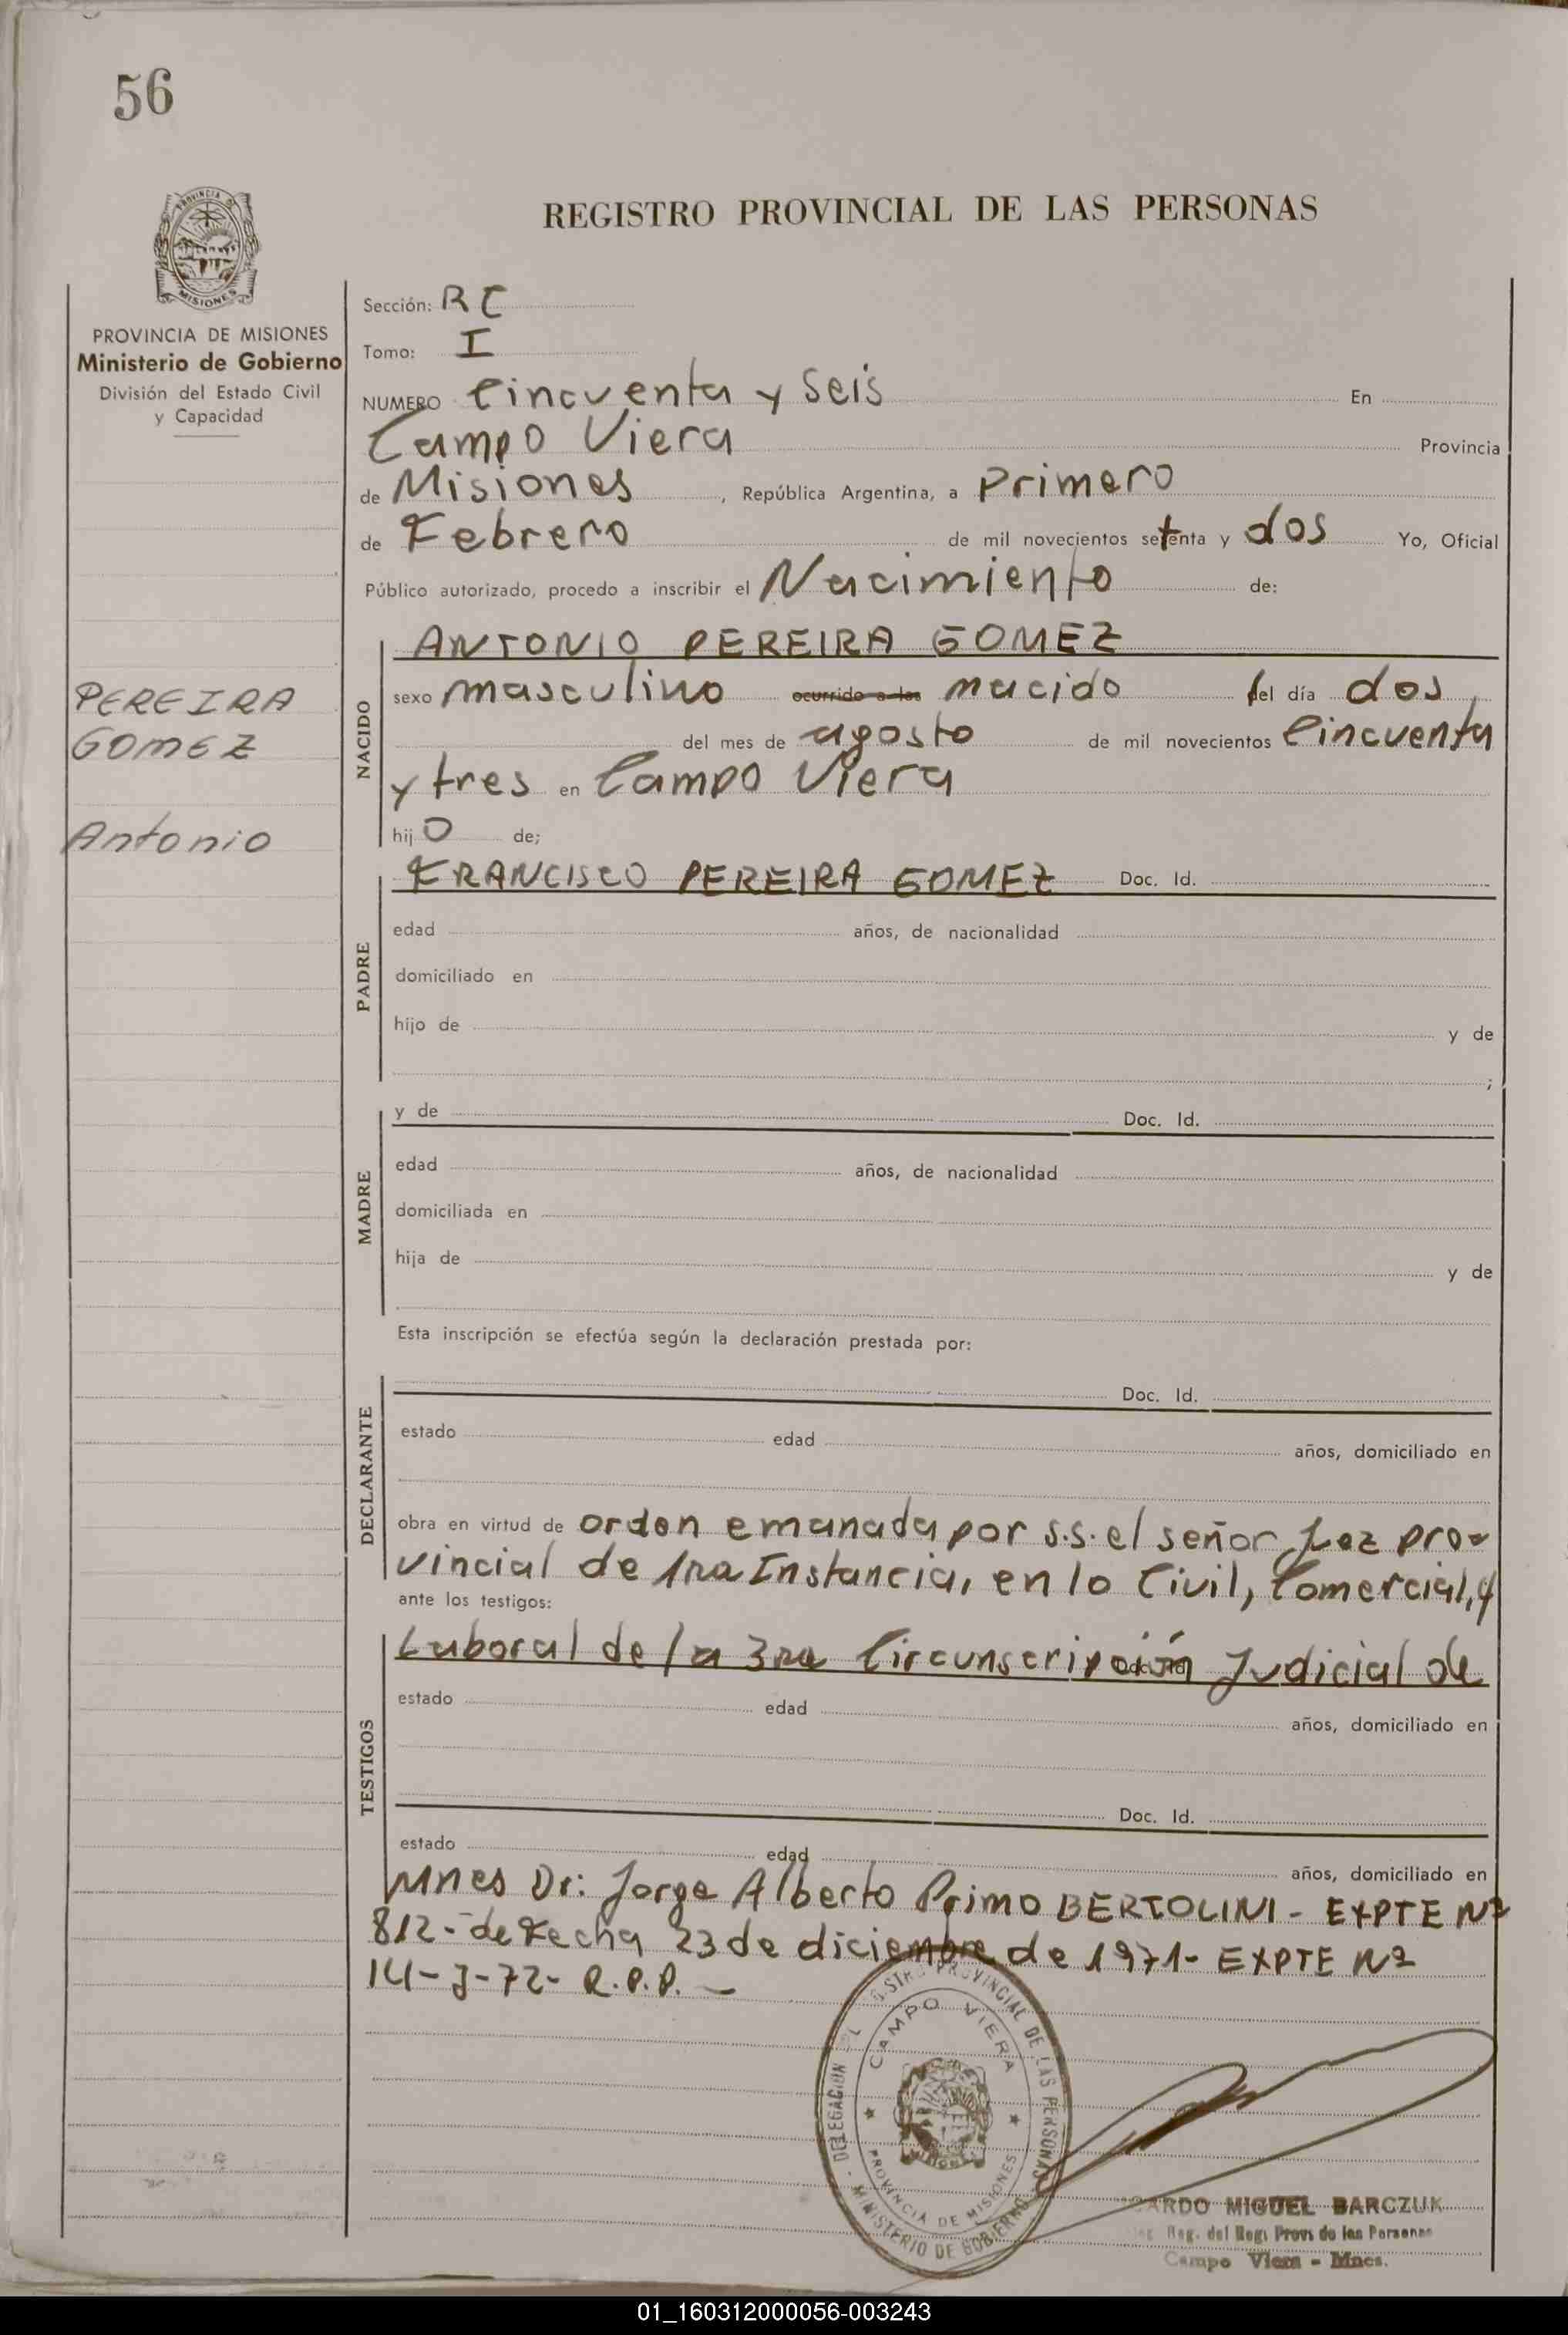 56
REGISTRO PROVINCIAL DE LAS PERSONAS
PROVINCIA DE MISIONES
Ministerio de Gobierno
División del Estado Civil
y Capacidad
PEREIRA
GOMEZ
Antonio
Sección: RC
Tomo: I
NUMERO Cincuenta y Seis En
Campo Viera Provincia
de Misiones, República Argentina, a Primero
de Febrero de mil novecientos setenta y dos Yo, Oficial
Público autorizado, procedo a inscribir el Nacimiento de:
NACIDO
ANTONIO PEREIRA GOMEZ
sexo masculino ocurrido a las nacido el día dos
del mes de agosto de mil novecientos Cincuenta
y tres en Campo Viera
hijo de;
PADRE
FRANCISCO PEREIRA GOMEZ Doc. Id.
edad años, de nacionalidad
domiciliado en
hijo de y de
;
MADRE
y de Doc. Id.
edad años, de nacionalidad
domiciliada en
hija de y de
Esta inscripción se efectúa según la declaración prestada por:
DECLARANTE
Doc. Id.
estado edad años, domiciliado en
obra en virtud de orden emanada por s.s. el señor Juez pro-
vincial de 1ra Instancia, en lo Civil, Comercial, y
ante los testigos:
TESTIGOS
Laboral de la 3ra Circunscripción Judicial de
estado edad años, domiciliado en
Doc. Id.
estado edad años, domiciliado en
Mnes Dr: Jorge Alberto Primo BERTOLINI - EXPTE Nº
812- de Fecha 23 de diciembre de 1971- EXPTE Nº
14-J-72- R.P.P. -
DELEGACION REGISTRO PROVINCIAL DE LAS PERSONAS
CAMPO VIERA
PROVINCIA DE MISIONES
MINISTERIO DE GOBIERNO
ARDO MIGUEL BARCZUK
Reg. del Regi Prov. de las Personas
Campo Viera - Mnes.
01_160312000056-003243